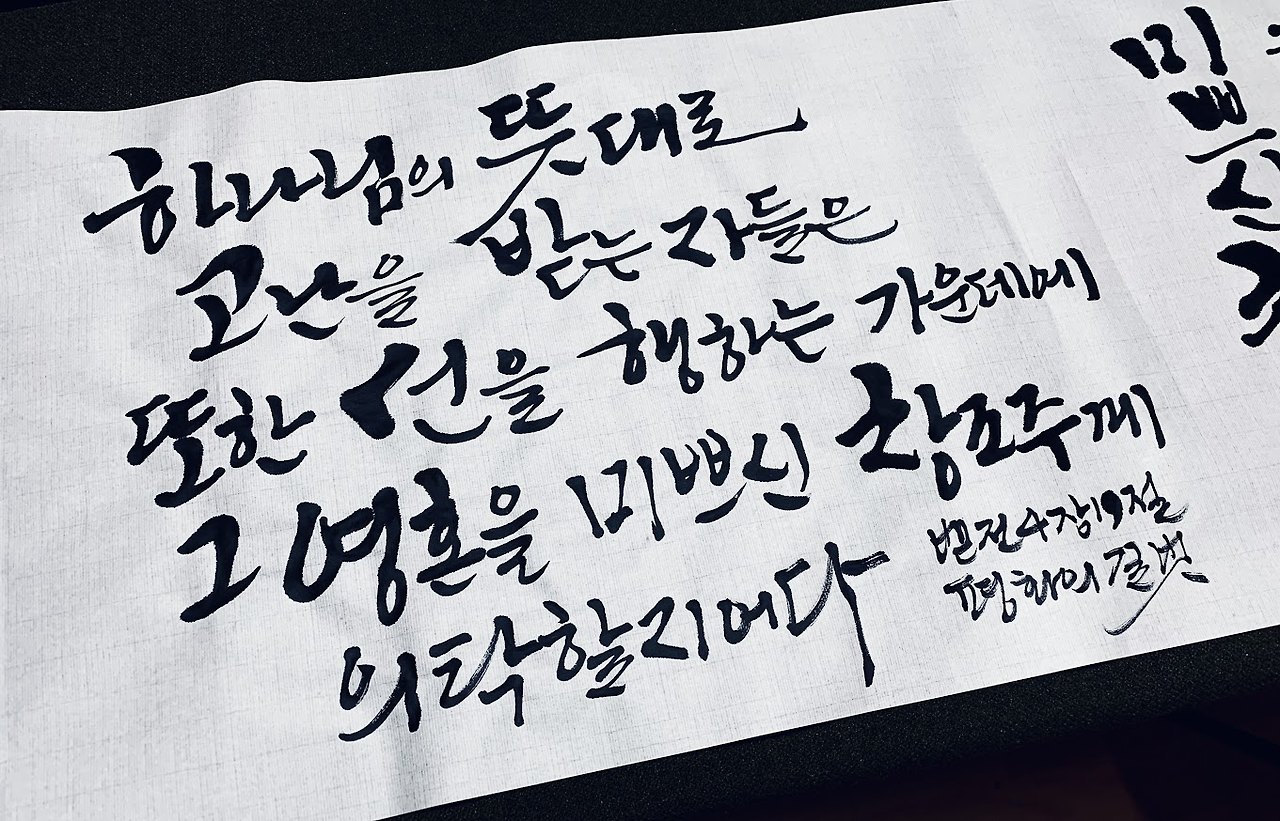 하나님의 뜻대로
고난을 받는 자들은
또한 선을 행하는 가운데에
그 영혼을 미쁘신 창조주께
의탁할지어다
벧전4장19절
평화의 길벗
미쁘신